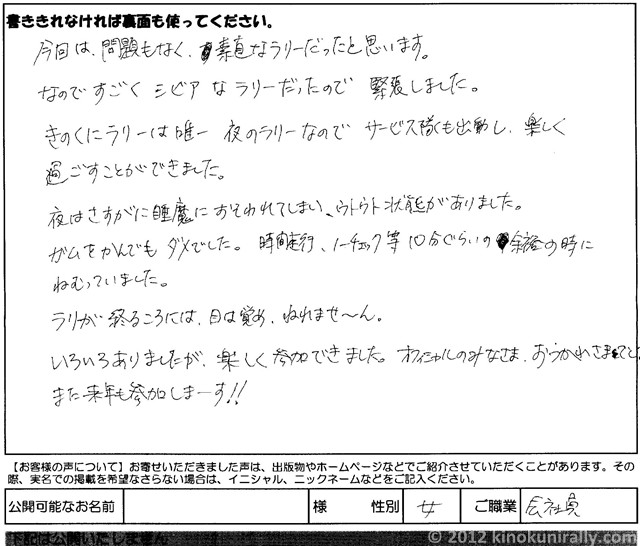 書ききれなければ裏面も使ってください。
今回は、問題もなく、素直なラリーだったと思います。
なのですごく シビア な ラリーだったので 緊張しました。
きのくにラリーは唯一 夜のラリーなので サービス隊も出動し、楽しく
過ごすことができました。
夜はさすがに睡魔におそわれてしまい、ウトウト状態がありました。
ガムをかんでも ダメでした。 時間走行、ノーチェック等 10分ぐらいの 余裕の時に
ねむっていました。
ラリーが 終るころには、目は覚め、ねれませ〜ん。
いろいろありましたが、楽しく参加できました。オフィシャルのみなさま、おつかれさま
また来年も参加しまーす!!
【お客様の声について】お寄せいただきました声は、出版物やホームページなどでご紹介させていただくことがあります。その
際、実名での掲載を希望なさらない場合は、イニシャル、ニックネームなどをご記入ください。
公開可能なお名前 様 性別 女 ご職業 会社員
下記は公開いたしません
© 2012 kinokunirally.com